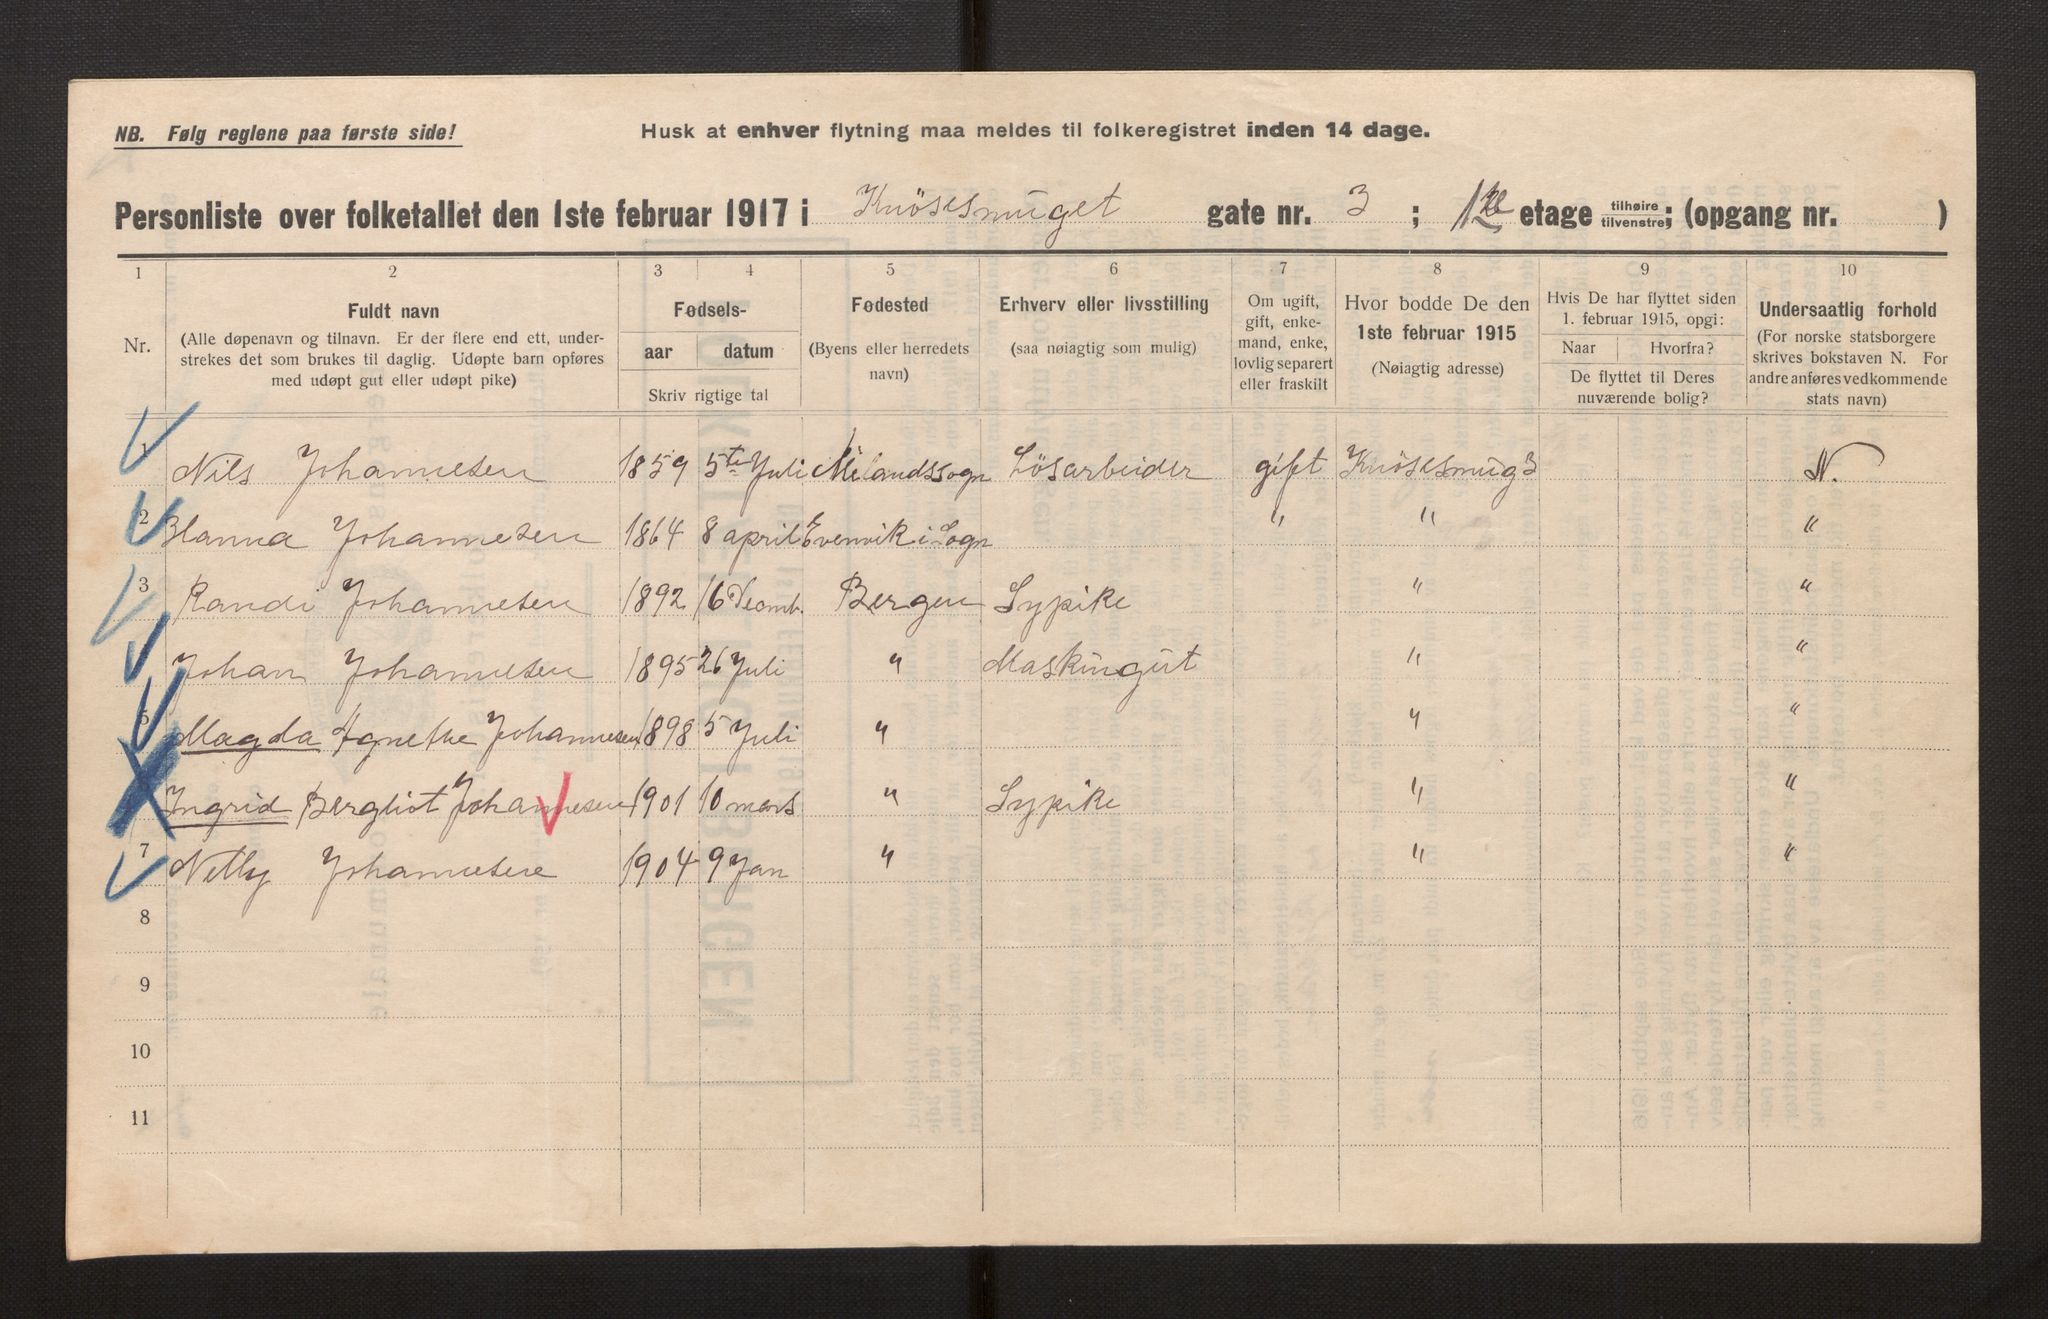 NB. Følg reglene paa første side!
Husk at enhver flytning maa meldes til folkeregistret inden 14 dage.
Personliste over folketallet den 1ste februar 1917 i Knösesmuget gate nr. 3 ; 1ste etage tilhøire tilvenstre; (opgang nr. )
1 2 3 4 5 6 7 8 9 10
Nr. Fuldt navn (Alle døpenavn og tilnavn. Er der flere end ett, understrekes det som brukes til daglig. Udøpte barn opføres med udøpt gut eller udøpt pike) Fødsels- aar datum Skriv rigtige tal Fødested (Byens eller herredets navn) Erhverv eller livsstilling (saa nøiagtig som mulig) Om ugift, gift, enkemand, enke, lovlig separert eller fraskilt Hvor bodde De den 1ste februar 1915 (Nøiagtig adresse) Hvis De har flyttet siden 1. februar 1915, opgi: Naar Hvorfra? De flyttet til Deres nuværende bolig? Undersaatlig forhold (For norske statsborgere skrives bokstaven N. For andre anføres vedkommende stats navn)
1 Nils Johannesen 1859 5te Juli Melandssogn Lösarbeider gift Knösesmug 3 N.
2 Hanna Johannesen 1864 8 april Evenvik i Sogn " " "
3 Randi Johannesen 1892 16 Decmb. Bergen Sypike " "
Johan Johannesen 1895 26 Juli " Maskingut " "
5 Magda Agnethe Johannesen 1898 5 Juli " " "
Ingrid Bergliot Johannesen 1901 10 mars " Sypike " "
7 Nelly Johannesen 1904 9 Jan " " "
8
9
10
11